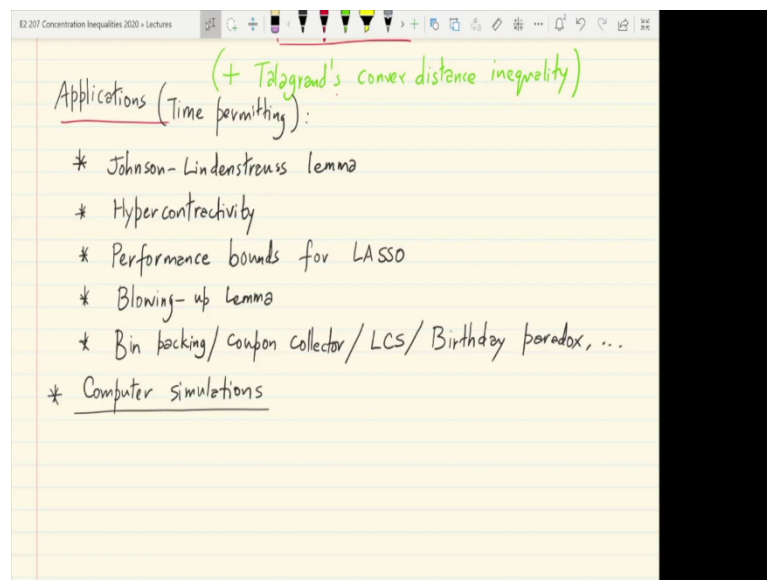 E2 207 Concentration Inequalities 2020 » Lectures
(+ Talagrand's convex distance inequality)
Applications (Time permitting):
* Johnson-Lindenstrauss lemma
* Hypercontractivity
* Performance bounds for LASSO
* Blowing-up Lemma
* Bin packing/ coupon collector/ LCS/ Birthday paradox, ...
* Computer simulations